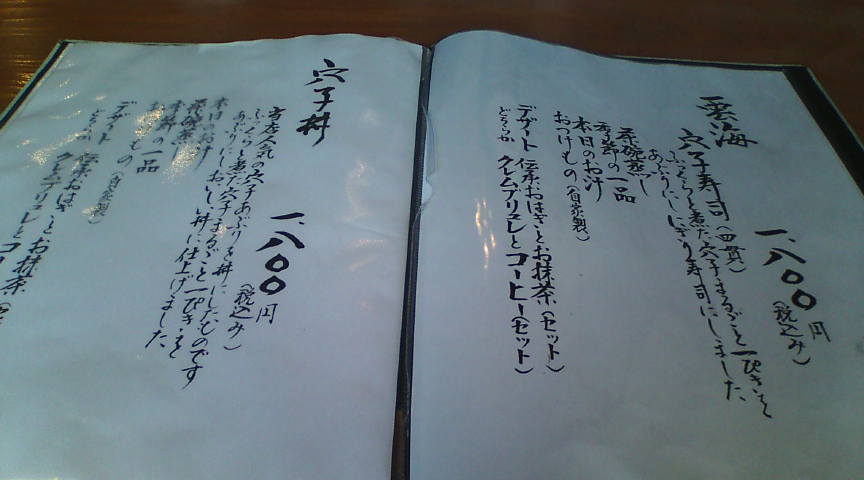 雲海
一、八〇〇円
(税込み)
穴子寿司(四貫)
ふっくらと煮た穴子まるごと一ぴきを
あぶりにし、にぎり寿司にしました。
茶碗蒸し
季節の一品
本日のお汁
おつけもの(自家製)
デザート 伝承おはぎとお抹茶(セット)
どちらか クレムブリュレとコーヒー(セット)
穴子丼
一、八〇〇円
(税込み)
当店人気の穴子あぶりを丼にしたものです
ふっくらと煮た穴子まるごと一ぴきを
あぶりにし、おいしい丼に仕上げました。
本日のお汁
茶碗蒸し
季節の一品
おつけもの(自家製)
デザート 伝承おはぎとお抹茶
どちらか クレムブリュレとコー